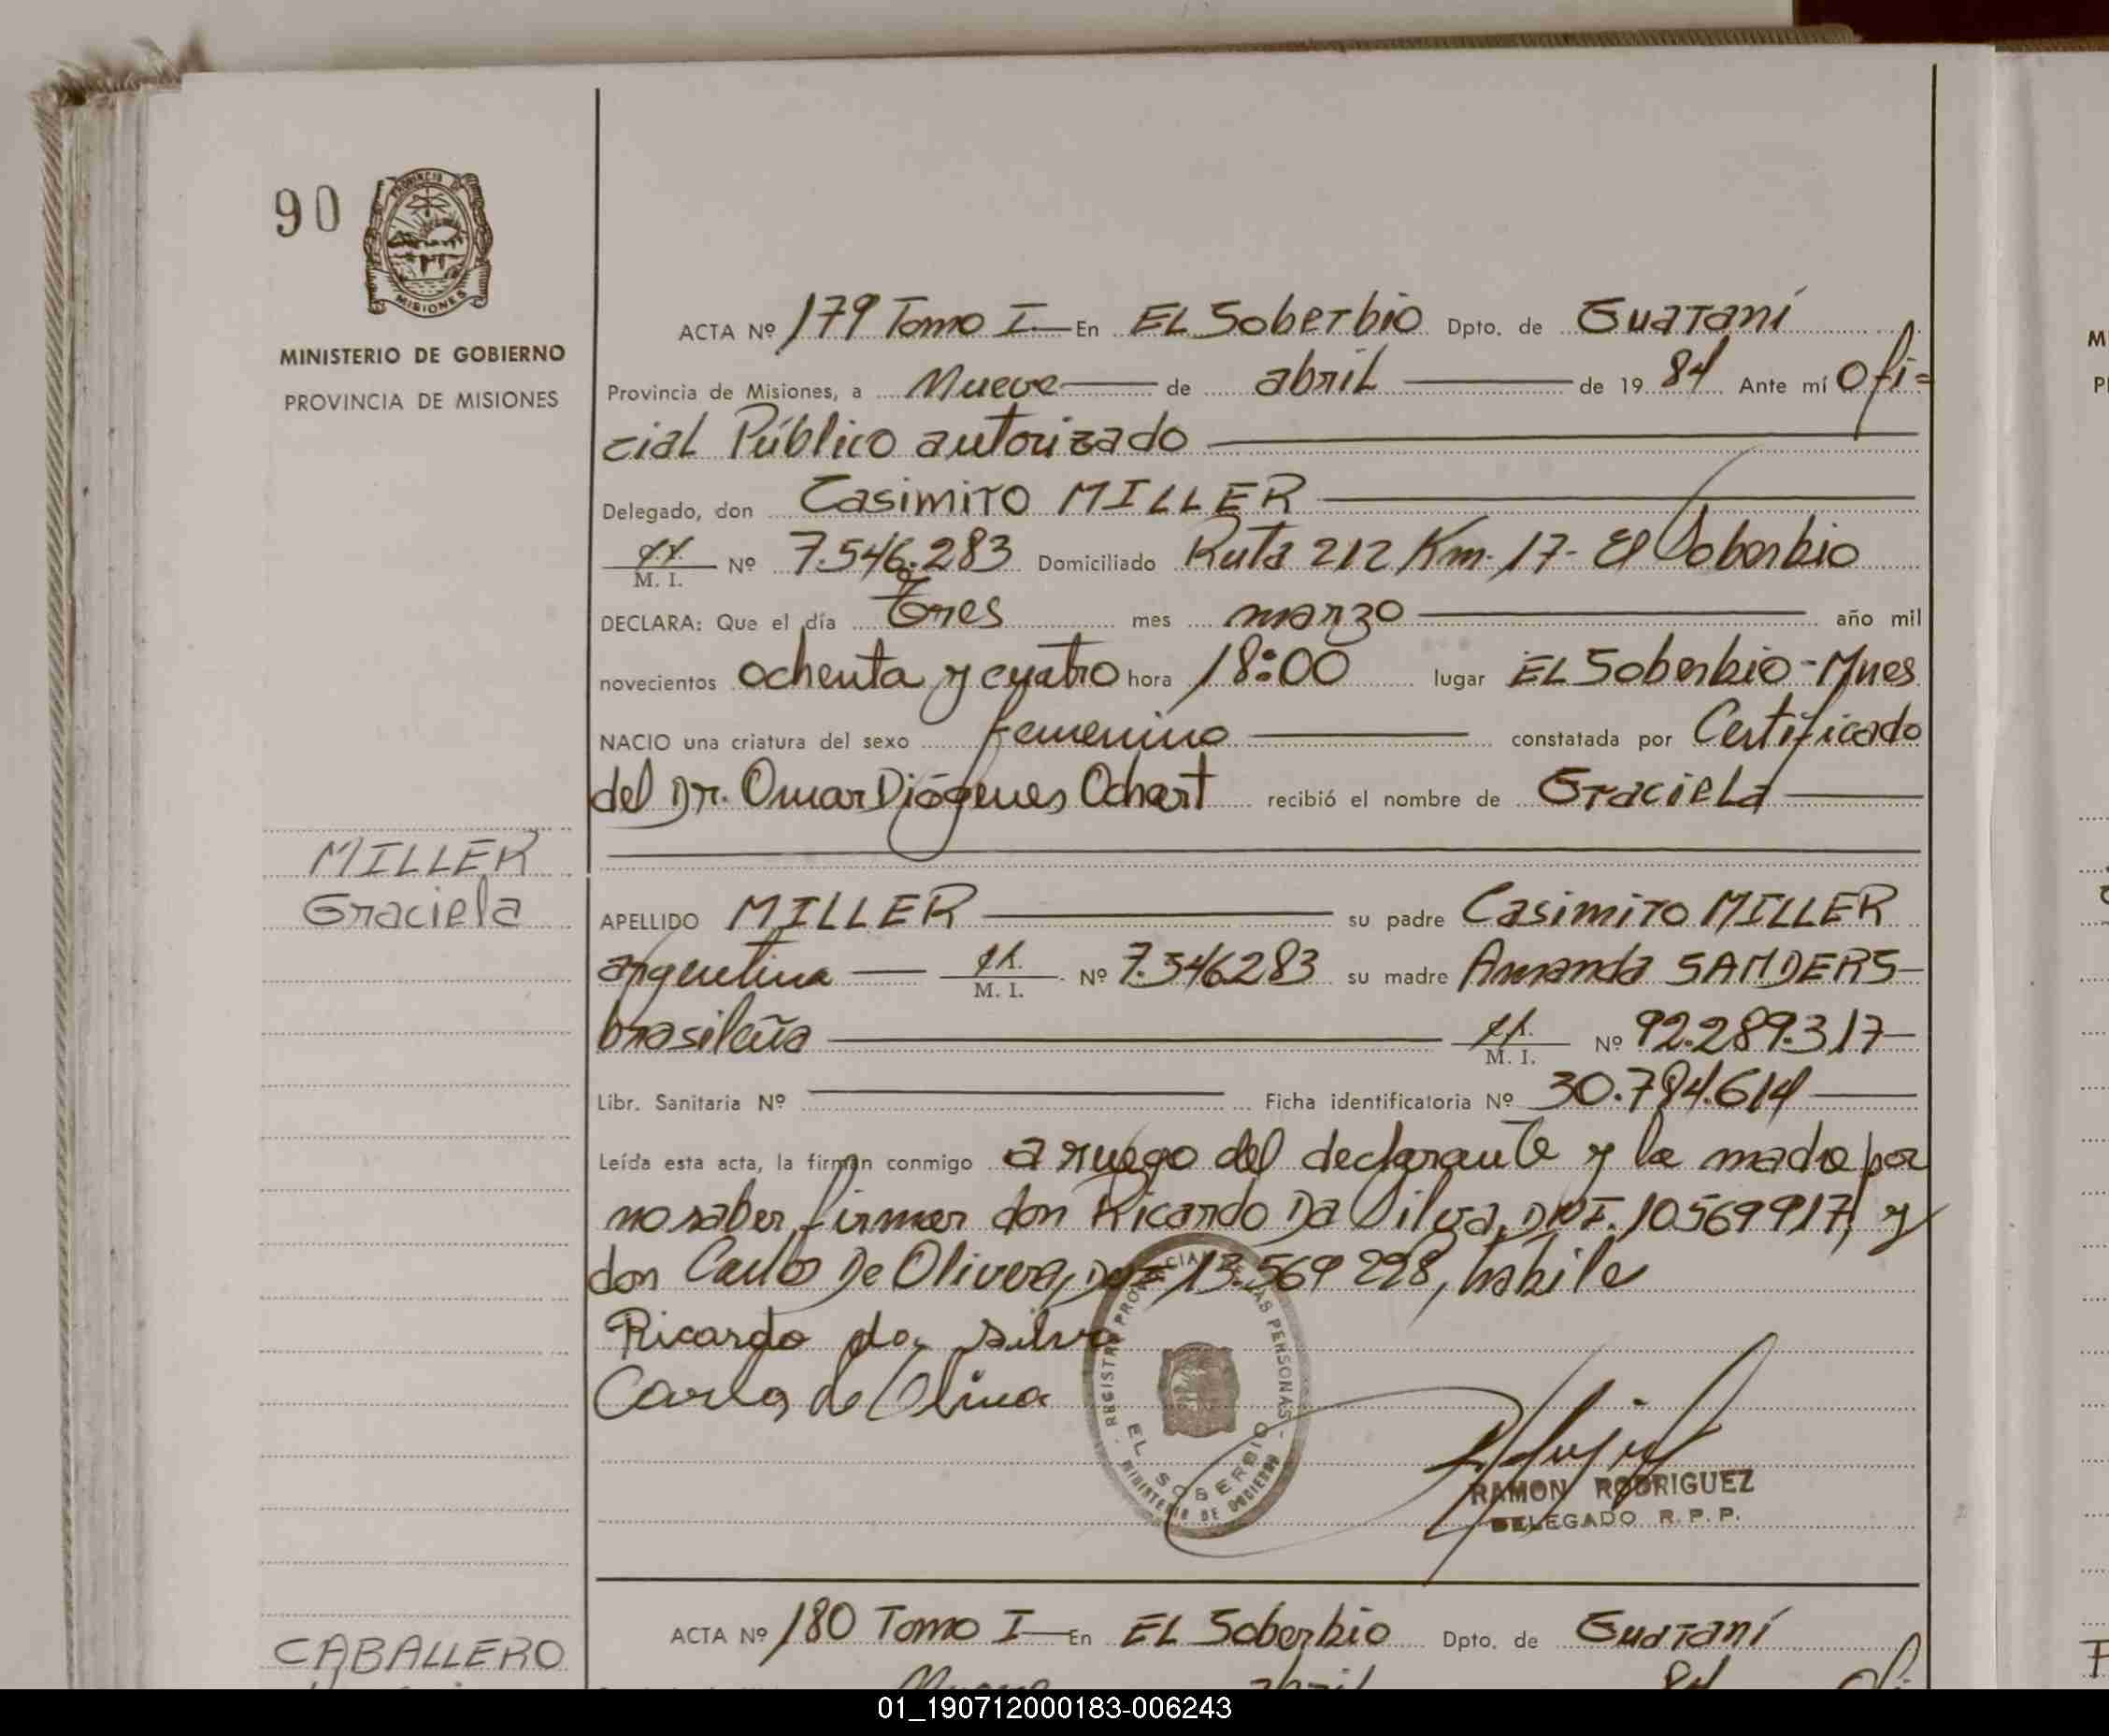 90
PROVINCIA DE
MISIONES
MINISTERIO DE GOBIERNO
PROVINCIA DE MISIONES
ACTA Nº 179 Tomo I En EL Soberbio Dpto. de Guaraní
Provincia de Misiones, a Nueve de abril de 19 84 Ante mí Ofi=
cial Público autorizado
Delegado, don Casimiro MILLER
M. I. Nº 7.546.283 Domiciliado Ruta 212 Km. 17- El Soberbio
DECLARA: Que el día Tres mes marzo año mil
novecientos ochenta y cuatro hora 18:00 lugar EL Soberbio - Mnes
NACIO una criatura del sexo femenino constatada por Certificado
del Dr. Omar Diógenes Ochart recibió el nombre de Graciela
MILLER
Graciela
APELLIDO MILLER su padre Casimiro MILLER
argentina M. I. Nº 7.546283 su madre Amanda SANDERS
brasileña M. I. Nº 92.289.317
Libr. Sanitaria Nº Ficha identificatoria Nº 30.784.614
Leída esta acta, la firman conmigo a ruego del declarante y la madre por
no saber firmar don Ricardo Da Silva, DNI. 10569917, y
don Carlos De Olivera, DNI 13.569 298, habile
Ricardo da silva
Carlos de Olivera
REGISTRO PROVINCIAL DE LAS PERSONAS
EL SOBERBIO
MINISTERIO DE GOBIERNO
RAMON RODRIGUEZ
DELEGADO R. P. P.
ACTA Nº 180 Tomo I En EL Soberbio Dpto. de Guaraní
CABALLERO
Nueve abril 84 Ofi
01_190712000183-006243